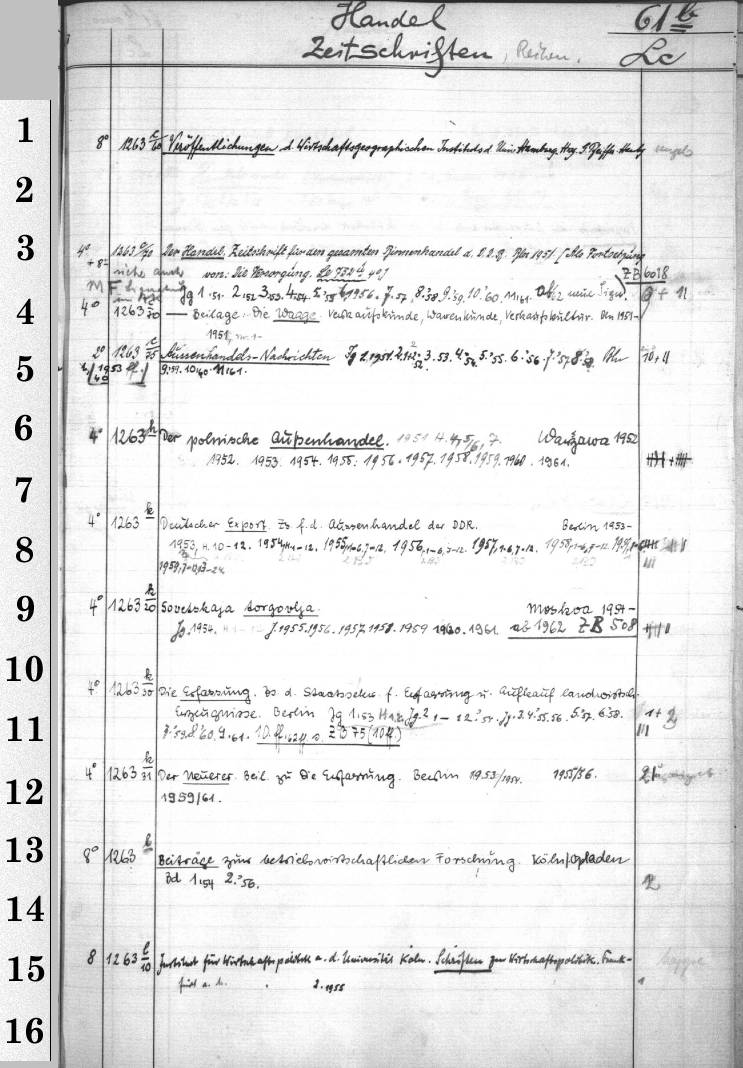 Handel 61 b
Zeitschriften, Reihen. Lc
1
8° 1263 c/60 Veröffentlichungen d. Wirtschaftsgeographischen Instituts d. Univ. Hamburg. Hrsg.
2
3
4° 1263 c/70 Der Handel. Zeitschrift für den gesamten Binnenhandel d. D.D.R. Bln 1951 [Als Fortsetzung
siehe auch von: Die Versorgung. 40] ZB 6018
M F
Jg 1.51. 2.52. 3.53. 4.54. 5.55. 6.1956. 7.57. 8.58. 9.59. 10.60. 11.61. ab 62 neue Sign.
4
4° 1263 — Beilage. Die Waage. Verkaufskunde, Warenkunde, Verkaufskultur. Bln 1951-
1951,
5
2° 1263 c/75 Aussenhandels-Nachrichten Jg 1.1951. 3.53. 4.54. 5.55. 6.56. 7.57. 8.58. Bln 10+1
9.59. 10.60. 11.61.
6
4° 1263 h Der polnische Außenhandel. 1951 H. 4, 5/6, 7. Warszawa 1952
1952. 1953. 1954. 1955. 1956. 1957. 1958. 1959. 1960. 1961.
7
4° 1263 k Deutscher Export. Zs f. d. Aussenhandel der DDR. Berlin 1953-
8
1953, H. 10-12. 1954, H. 1-12. 1955, 1-6, 7-12. 1956, 1-6, 7-12. 1957, 1-6, 7-12. 1958, 1-6, 7-12.
9
4° 1263 k/20 Sovetskaja torgovlja. Moskva 1954-
Jg. 1954. J. 1955. 1956. 1957. 1958. 1959 1960. 1961. ab 1962 ZB 508
10
4° 1263 k/30 Die Erfassung. Zs. d. Staatssekr. f. Erfassung u. Aufkauf landwirtsch.
11
Erzeugnisse. Berlin Jg 1.53 Jg. 2 1-12.54. Jg. 3.4.55.56. 5.57. 6.58.
7.59. 8.60. 9.61. 10 ff. 62 ff. s. ZB 75 (10 ff.)
12
4° 1263 k/31 Der Neuerer. Beil. zu Die Erfassung. Berlin 1953/1954. 1955/56.
1959/61.
13
8° 1263 l Beiträge zur betriebswirtschaftlichen Forschung. Köln/Opladen
Bd 1.54 2.56. 2
14
15
8 1263 l/10 Institut für Wirtschaftspolitik a. d. Universität Köln. Schriften zur Wirtschaftspolitik. Frank-
furt a. M. 2. 1955
16